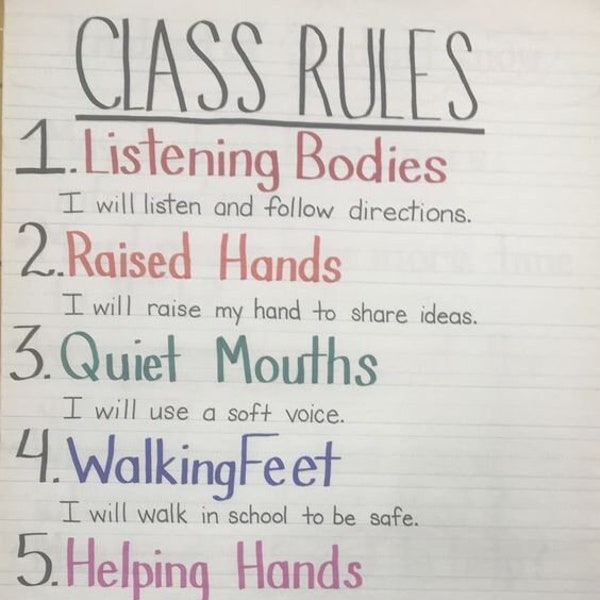 CLASS RULES
1. Listening Bodies
I will listen and follow directions.
2. Raised Hands
I will raise my hand to share ideas.
3. Quiet Mouths
I will use a soft voice.
4. Walking Feet
I will walk in school to be safe.
5. Helping Hands